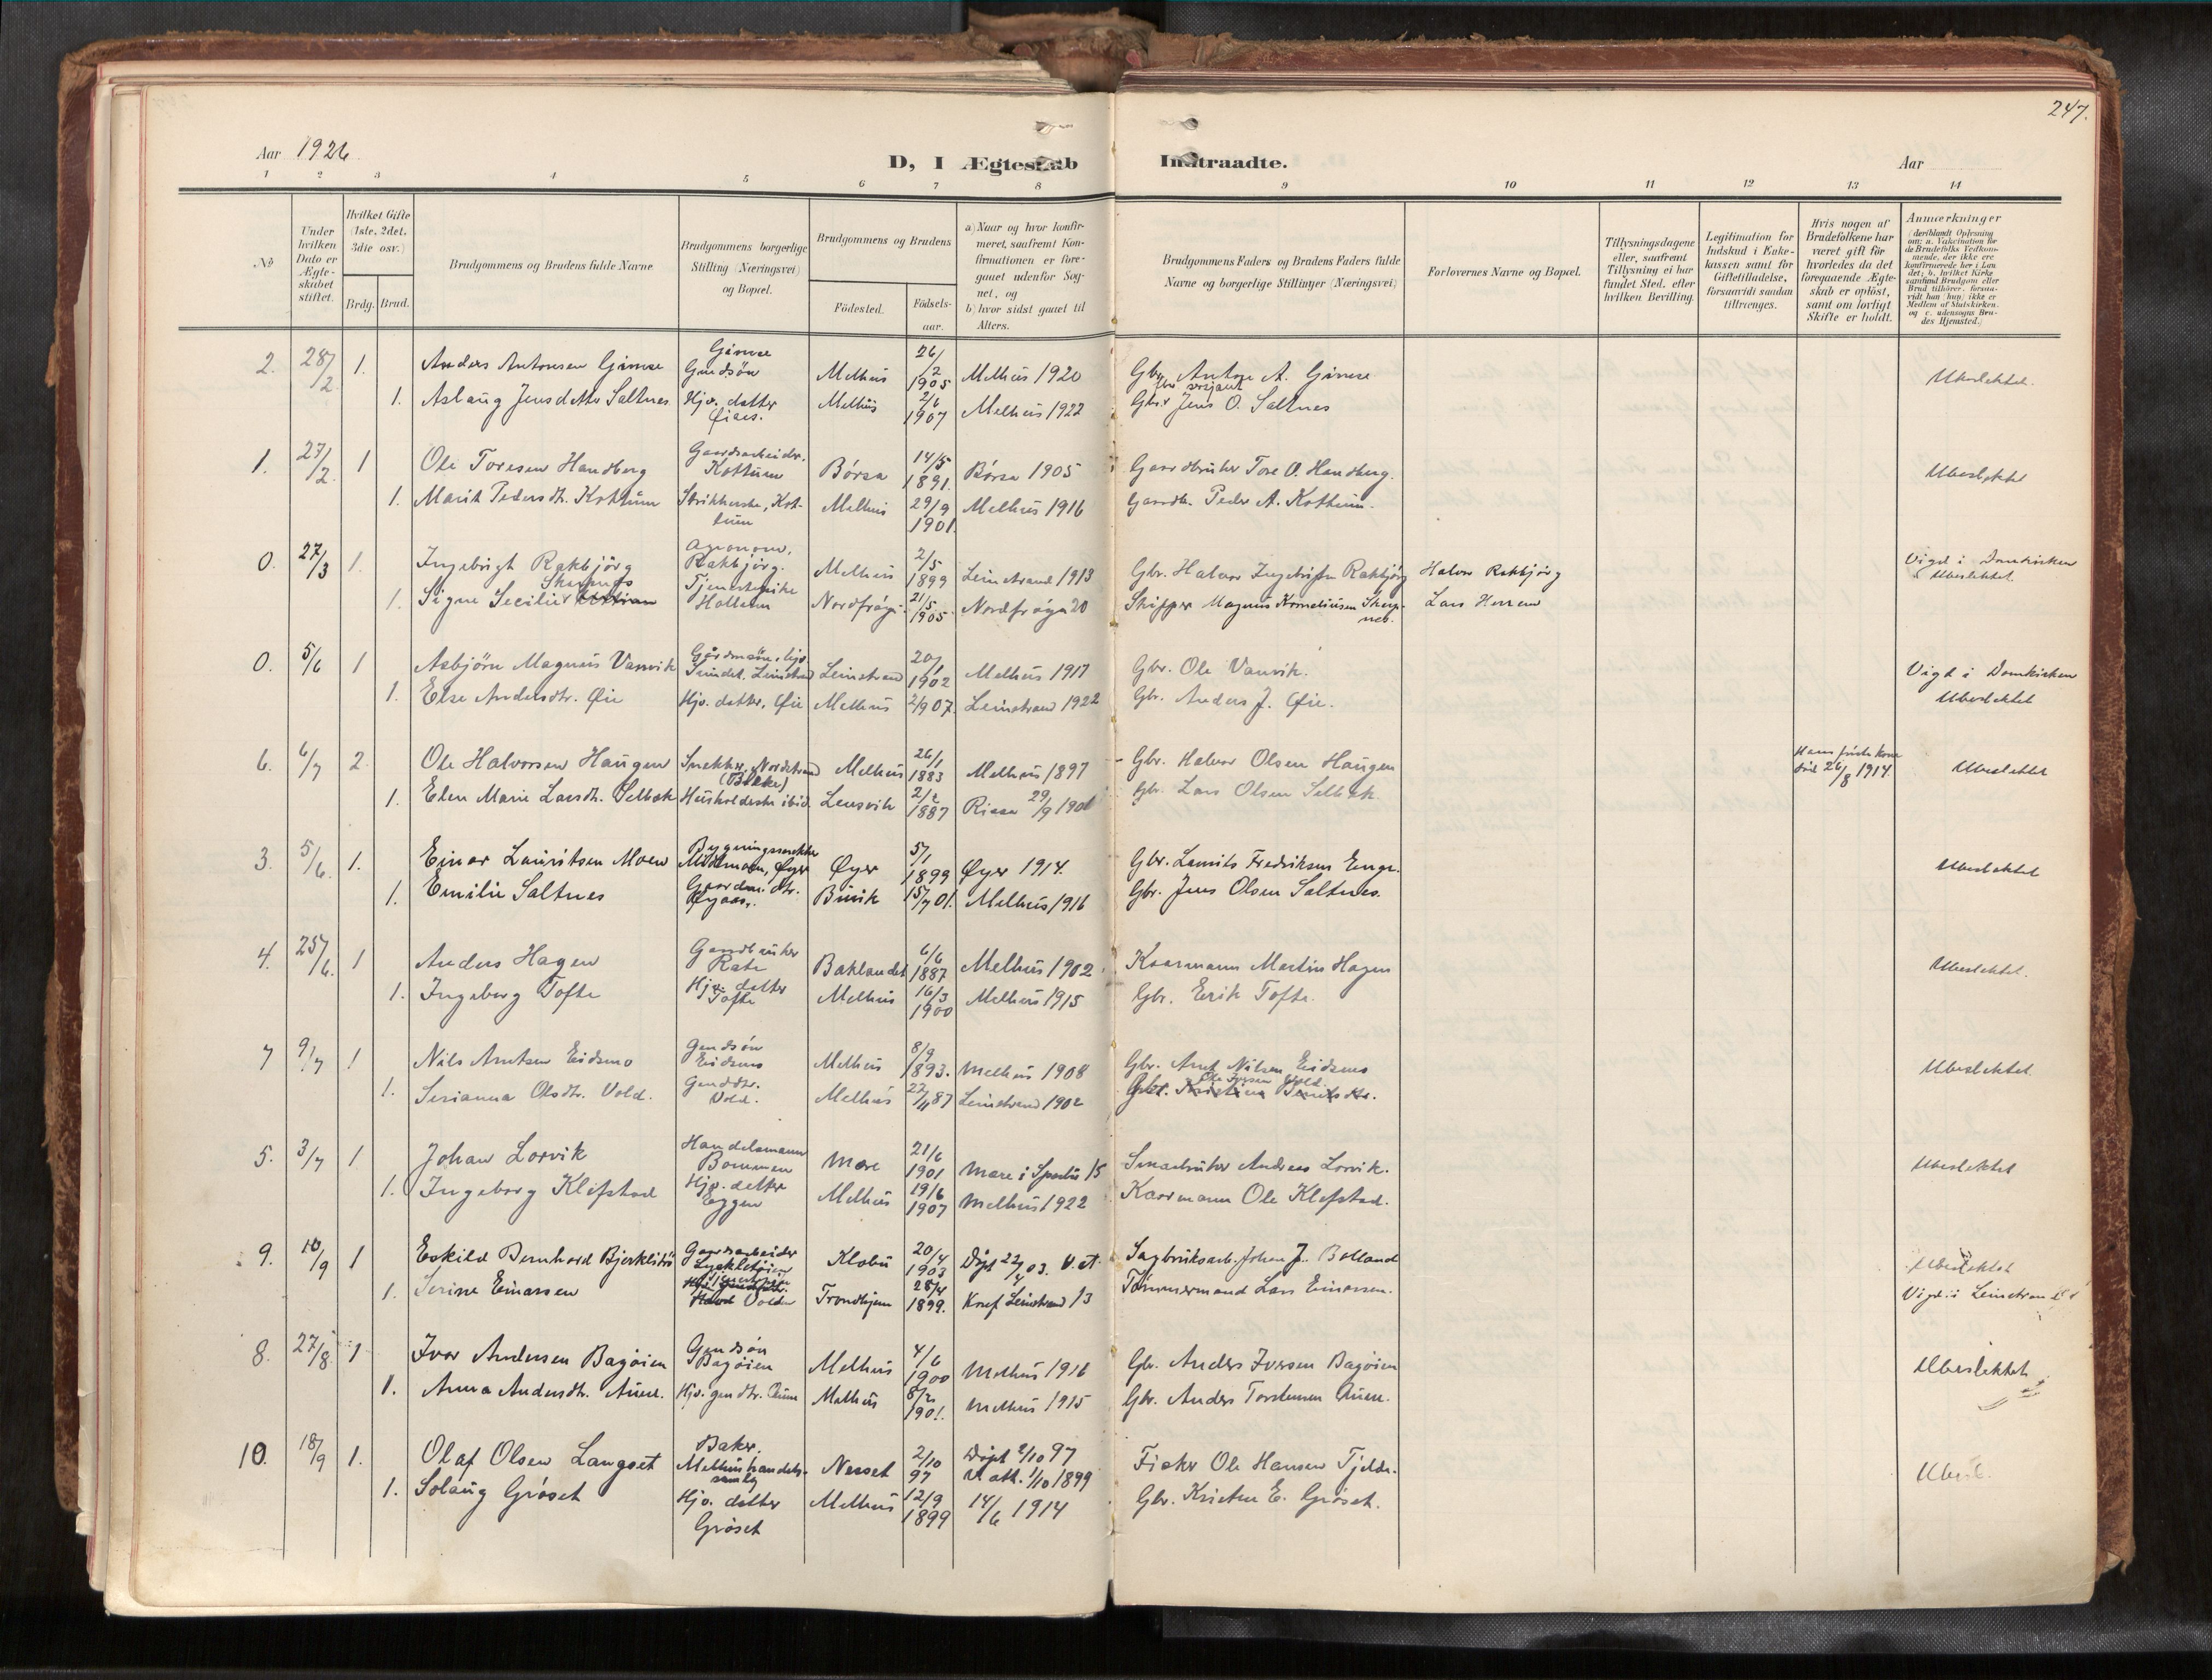 247.
Aar 1926
D, I Ægteskab Indtraadte.
Aar
1 2 3 4 5 6 7 8 9 10 11 12 13 14
No
Under hvilken Dato er Ægteskabet stiftet.
Hvilket Gifte (1ste, 2det, 3die osv.)
Brdg. Brud.
Brudgommens og Brudens fulde Navne
Brudgommens borgerlige Stilling (Næringsvei) og Bopæl.
Brudgommens og Brudens
Födested.
Födselsaar.
a) Naar og hvor konfirmeret, saafremt Konfirmationen er foregaaet udenfor Sognet, og
b) hvor sidst gaaet til Alters.
Brudgommens Faders og Brudens Faders fulde Navne og borgerlige Stillinger (Næringsvei)
Forlovernes Navne og Bopæl.
Tillysningsdagene eller, saafremt Tillysning ei har fundet Sted, efter hvilken Bevilling.
Legitimation for Indskud i Enkekassen samt for Giftetilladelse, forsaavidt saadan tiltrænges.
Hvis nogen af Brudefolkene har været gift för hvorledes da det foregaaende Ægteskab er oplöst, samt om lovligt Skifte er holdt.
Anmærkninger
(deriblandt Oplysning om: a. Vakcination for de Brudefolks Vedkommende, der ikke ere konfirmerede her i Landet; b. hvilket Kirkesamfund Brudgom eller Brud tilhörer, forsaavidt han (hun) ikke er Medlem af Statskirken, og c. udensogns Brudes Hjemsted.)
2. 28/2 1. Anders Antonsen Gimse Gimse Gmdsøn Melhus 26/2 1905 Melhus 1920 Gbr. Anton A. Gimse Ubeslektet.
1. Aslaug Jensdatter Saltnes Hjv. datter Øiaas. Melhus 2/6 1907 Melhus 1922 Gbr Jens O. Saltnes
1. 27/2. 1 Ole Toresen Handberg Gaardsarbeider. Kottum Børsa 14/5 1891. Børsa 1905 Gaardbruker Tore O. Handberg. Ubeslektet
1. Marit Pedersdt. Kottum Strikkerske, Kottum Melhus 29/9 1901. Melhus 1916 Gaardb. Peder A. Kottum.
0. 27/3 1. Ingebrigt Rakbjörg Agronom, Rakbjørg. Melhus 2/5 1899 Leinstrand 1913 Gbr. Halvor Ingebrigtsen Rakbjörg Halvor Rakbjörg Vigd i Domkirken Ubeslektet.
1. Signe Secilie Skarpnes Tjenestepike Hollum Nordfrøya 21/5 1905 Nordfrøya 20 Skipper Magnus Korneliusen Skarpnes. Lars Horrem
0. 5/6 1 Asbjörn Magnus Vanvik Leinstrand 20/1 1902 Melhus 1917 Gbr. Ole Vanvik. Vigd i Domkirken
1. Else Andersdtr. Øie Hjv. datter, Øie Melhus 2/9 07. Leinstrand 1922 Gbr. Anders J. Øie. Ubeslektet
6. 6/7 2. Ole Halvorsen Haugen Snekker, Nordstrand (Bakke) Melhus 26/1 1883 Melhus 1897 Gbr. Halvor Olsen Haugen Hans første kone död 26/8 1914. Ubeslektet
1. Elen Marie Larsdt. Selbæk Husholderske ibid. Lensvik 2/2 1887 Rissa 29/9 1901 Gbr. Lars Olsen Selbæk.
3. 5/6. 1. Einar Lauritsen Moen Bygningssnekker Midtmoen, Øyer Øyer 5/1 1899 Øyer 1914. Gbr. Laurits Fredriksen Enge. Ubeslektet
1. Emilie Saltnes Gaardm. dtr. Øyaas. Buvik 15/7 01. Melhus 1916 Gbr. Jens Olsen Saltnes.
4. 25/6. 1 Anders Hagen Gaardbruker Rate Baklandet 6/6 1887 Melhus 1902 Kaarmann Martin Hagen Ubeslektet.
1. Ingeborg Tofte Hjv. datter Tofte Melhus 16/3 1900 Melhus 1915 Gbr. Erik Tofte.
7 9/7 1 Nils Arntsen Eidsmo Gmdsön Eidsmo Melhus 8/9 1893. Melhus 1908 Gbr. Arnt Nilsen Eidsmo Ubeslektet.
1. Serianna Olsdtr. Vold. Gmddtr. Vold. Melhus 22/11 87 Leinstrand 1902 Gbr. Ole Vold.
5. 3/7 1 Johan Lorvik Handelsmann Bommen Mære 21/6 1901 Mære i Sparbu 15 Smaabruker Andreas Lorvik. Ubeslektet
1. Ingeborg Klefstad Hjv. datter Eggen Melhus 19/6 1907 Melhus 1922 Kaarmann Ole Klefstad.
9. 10/9 1 Eskild Bernhard Bjerklitrø Gaardsarbeider Klæbu 20/4 1903 Døpt 22/4 03. Sagbruksarb. Johan J. Bolland Ubeslektet
1. Serine Einarsen Volden Trondhjem 28/4 1899. Konf Leinstrand 13 Tømmermand Lars Einarsen. Vigd i Leinstrand
8. 27/8. 1 Ivar Andersen Bagøien Gmdsøn Bagøien Melhus 4/6 1900 Melhus 1916 Gbr. Anders Iversen Bagøien Ubeslektet
1. Anna Andersdt. Aune. Hjv. gmdtr. Aune Melhus 8/2 1901. Melhus 1915 Gbr. Anders Torstensen Aune.
10. 18/9 1. Olaf Olsen Langset Baker. Melhus handelssamlg Nesset 2/10 97 Døpt 2/10 97 1/10 1899 Fisker Ole Hansen Tjelde. Ubesl.
1. Solaug Grøset Hjv. datter Grøset Melhus 12/9 1899 14/6 1914 Gbr. Kristen E. Grøset.